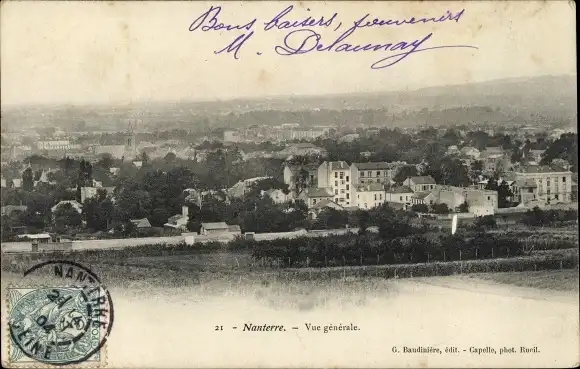 Bons baisers, souvenirs
M. Delaunay
21 - Nanterre. - Vue générale.
G. Baudinière, édit. - Capelle, phot. Rueil.
NANTERRE
SEINE